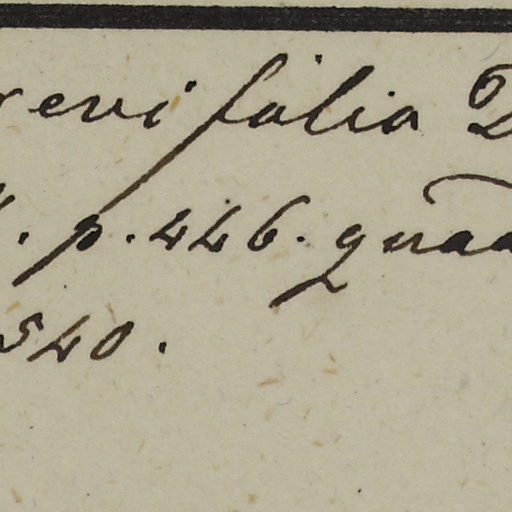 revifolia D
. p. 446. quad
540.